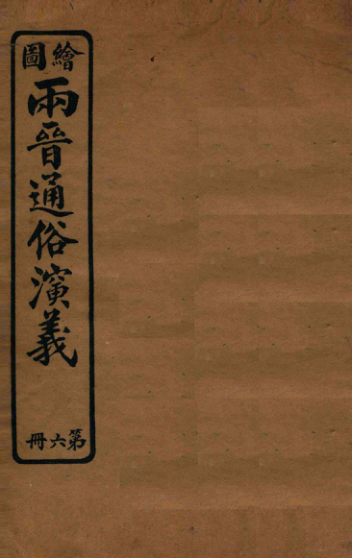 繪圖
兩晉通俗演義
第六冊